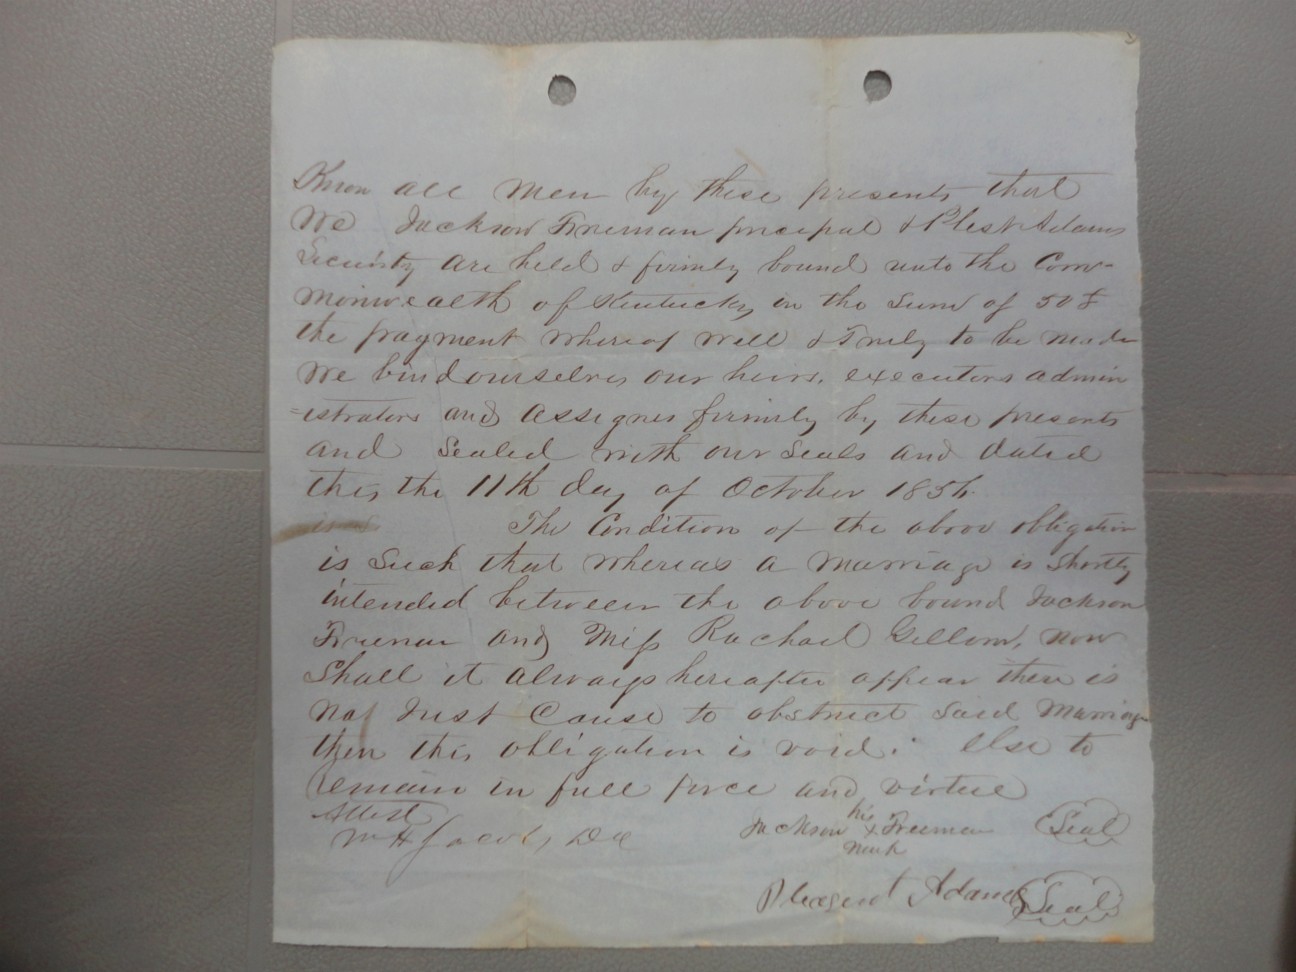 Know all men by these presents that
We Jackson Freeman princepal & Plest Adams
Security are held & firmly bound unto the Com-
monwealth of Kentucky in the Sum of 50 £
the payment whereof well & Truly to be made
We bind ourselves our heirs, executors admin
=istrators and assignes firmly by these presents
and Sealed with our Seals and dated
this the 11th day of October 1856.
The Condition of the above obligation
is Such that whereas a Marriage is Shortly
intended between the above bound Jackson
Freeman and Miss Rachael Gillom, now
Shall it always hereafter appear there is
no Just Cause to obstruct said Marriage
then this obligation is void: else to
remain in full force and virtue
Attest
his
Jackson x Freeman (Seal)
mark
W H Jacobs, D C
Pleasent Adams (Seal)